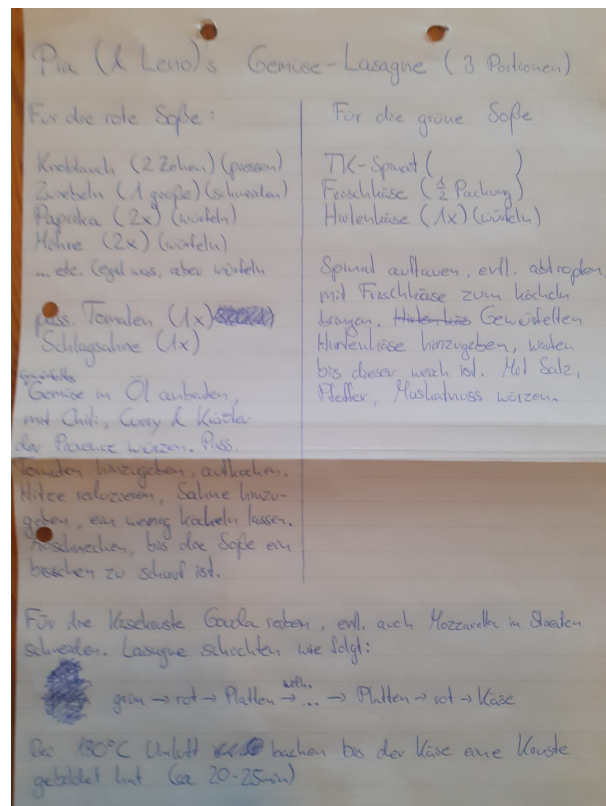 Pia (& Leno)'s Gemüse-Lasagne (3 Portionen)
Für die rote Soße:
Knoblauch (2 Zehen) (pressen)
Zwiebeln (1 große) (schneiden)
Paprika (2x) (würfeln)
Möhre (2x) (würfeln)
... etc. (egal was, aber würfeln
pass. Tomaten (1x)
Schlagsahne (1x)
gewürfeltes
Gemüse in Öl anbraten,
mit Chili, Curry & Kräuter
der Provence würzen. Pass.
Tomaten hinzugeben, aufkochen.
Hitze reduzieren, Sahne hinzu-
geben, ein wenig köcheln lassen.
Abschmecken, bis die Soße ein
bisschen zu scharf ist.
Für die grüne Soße
TK-Spinat ( )
Frischkäse (1/2 Packung)
Hirtenkäse (1x) (würfeln)
Spinat auftauen, evtl. abtropfen,
mit Frischkäse zum köcheln
bringen. Hirtenkäs Gewürfelten
Hirtenkäse hinzugeben, warten
bis dieser weich ist. Mit Salz,
Pfeffer, Muskatnuss würzen.
Für die Käsekruste Gouda reiben, evtl. auch Mozzarella in Streifen
schneiden. Lasagne schichten wie folgt:
grün → rot → Platten → ... → Platten → rot → Käse
Bei 180°C Umluft backen bis der Käse eine Kruste
gebildet hat (ca 20-25min)